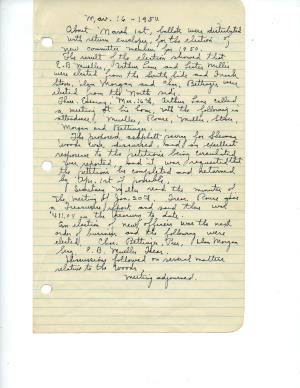 Mar. 16 - 1950
About March 1st, ballots were distributed
with return envelopes, for the election of
new committee members for 1950.
The result of the election showed that
E.B. Mueller, Arthur and Peter Miller
were elected from the South side and Frank
Stou, Alan Morgan and Chas. Bettinger were
elected from the North side.
Thurs. Evening Mar. 16th, Arthur called
a meeting at his home, with the following in
attendance, Mueller, Miller, Stou,
Morgan and Bettinger.
The proposed asphalt paving for Sherman
Woods was discussed, and an excellent
response to the petitions being circulated
was reported, and it was requested that
the petitions be completed and returned
by Apr. 1st if possible.
Secretary Miller read the minutes of
the meeting of Jan. 20th. Treas. gave
a Treasurer's report and said there was
in the treasury to date.
An election of new officers was the next
order of business and the following were
elected. Chas. Bettinger, Pres., Alan Morgan
Secy. E. B. Mueller Treas.
Discussion followed on several matters
relative to the Woods.
Meeting adjourned.